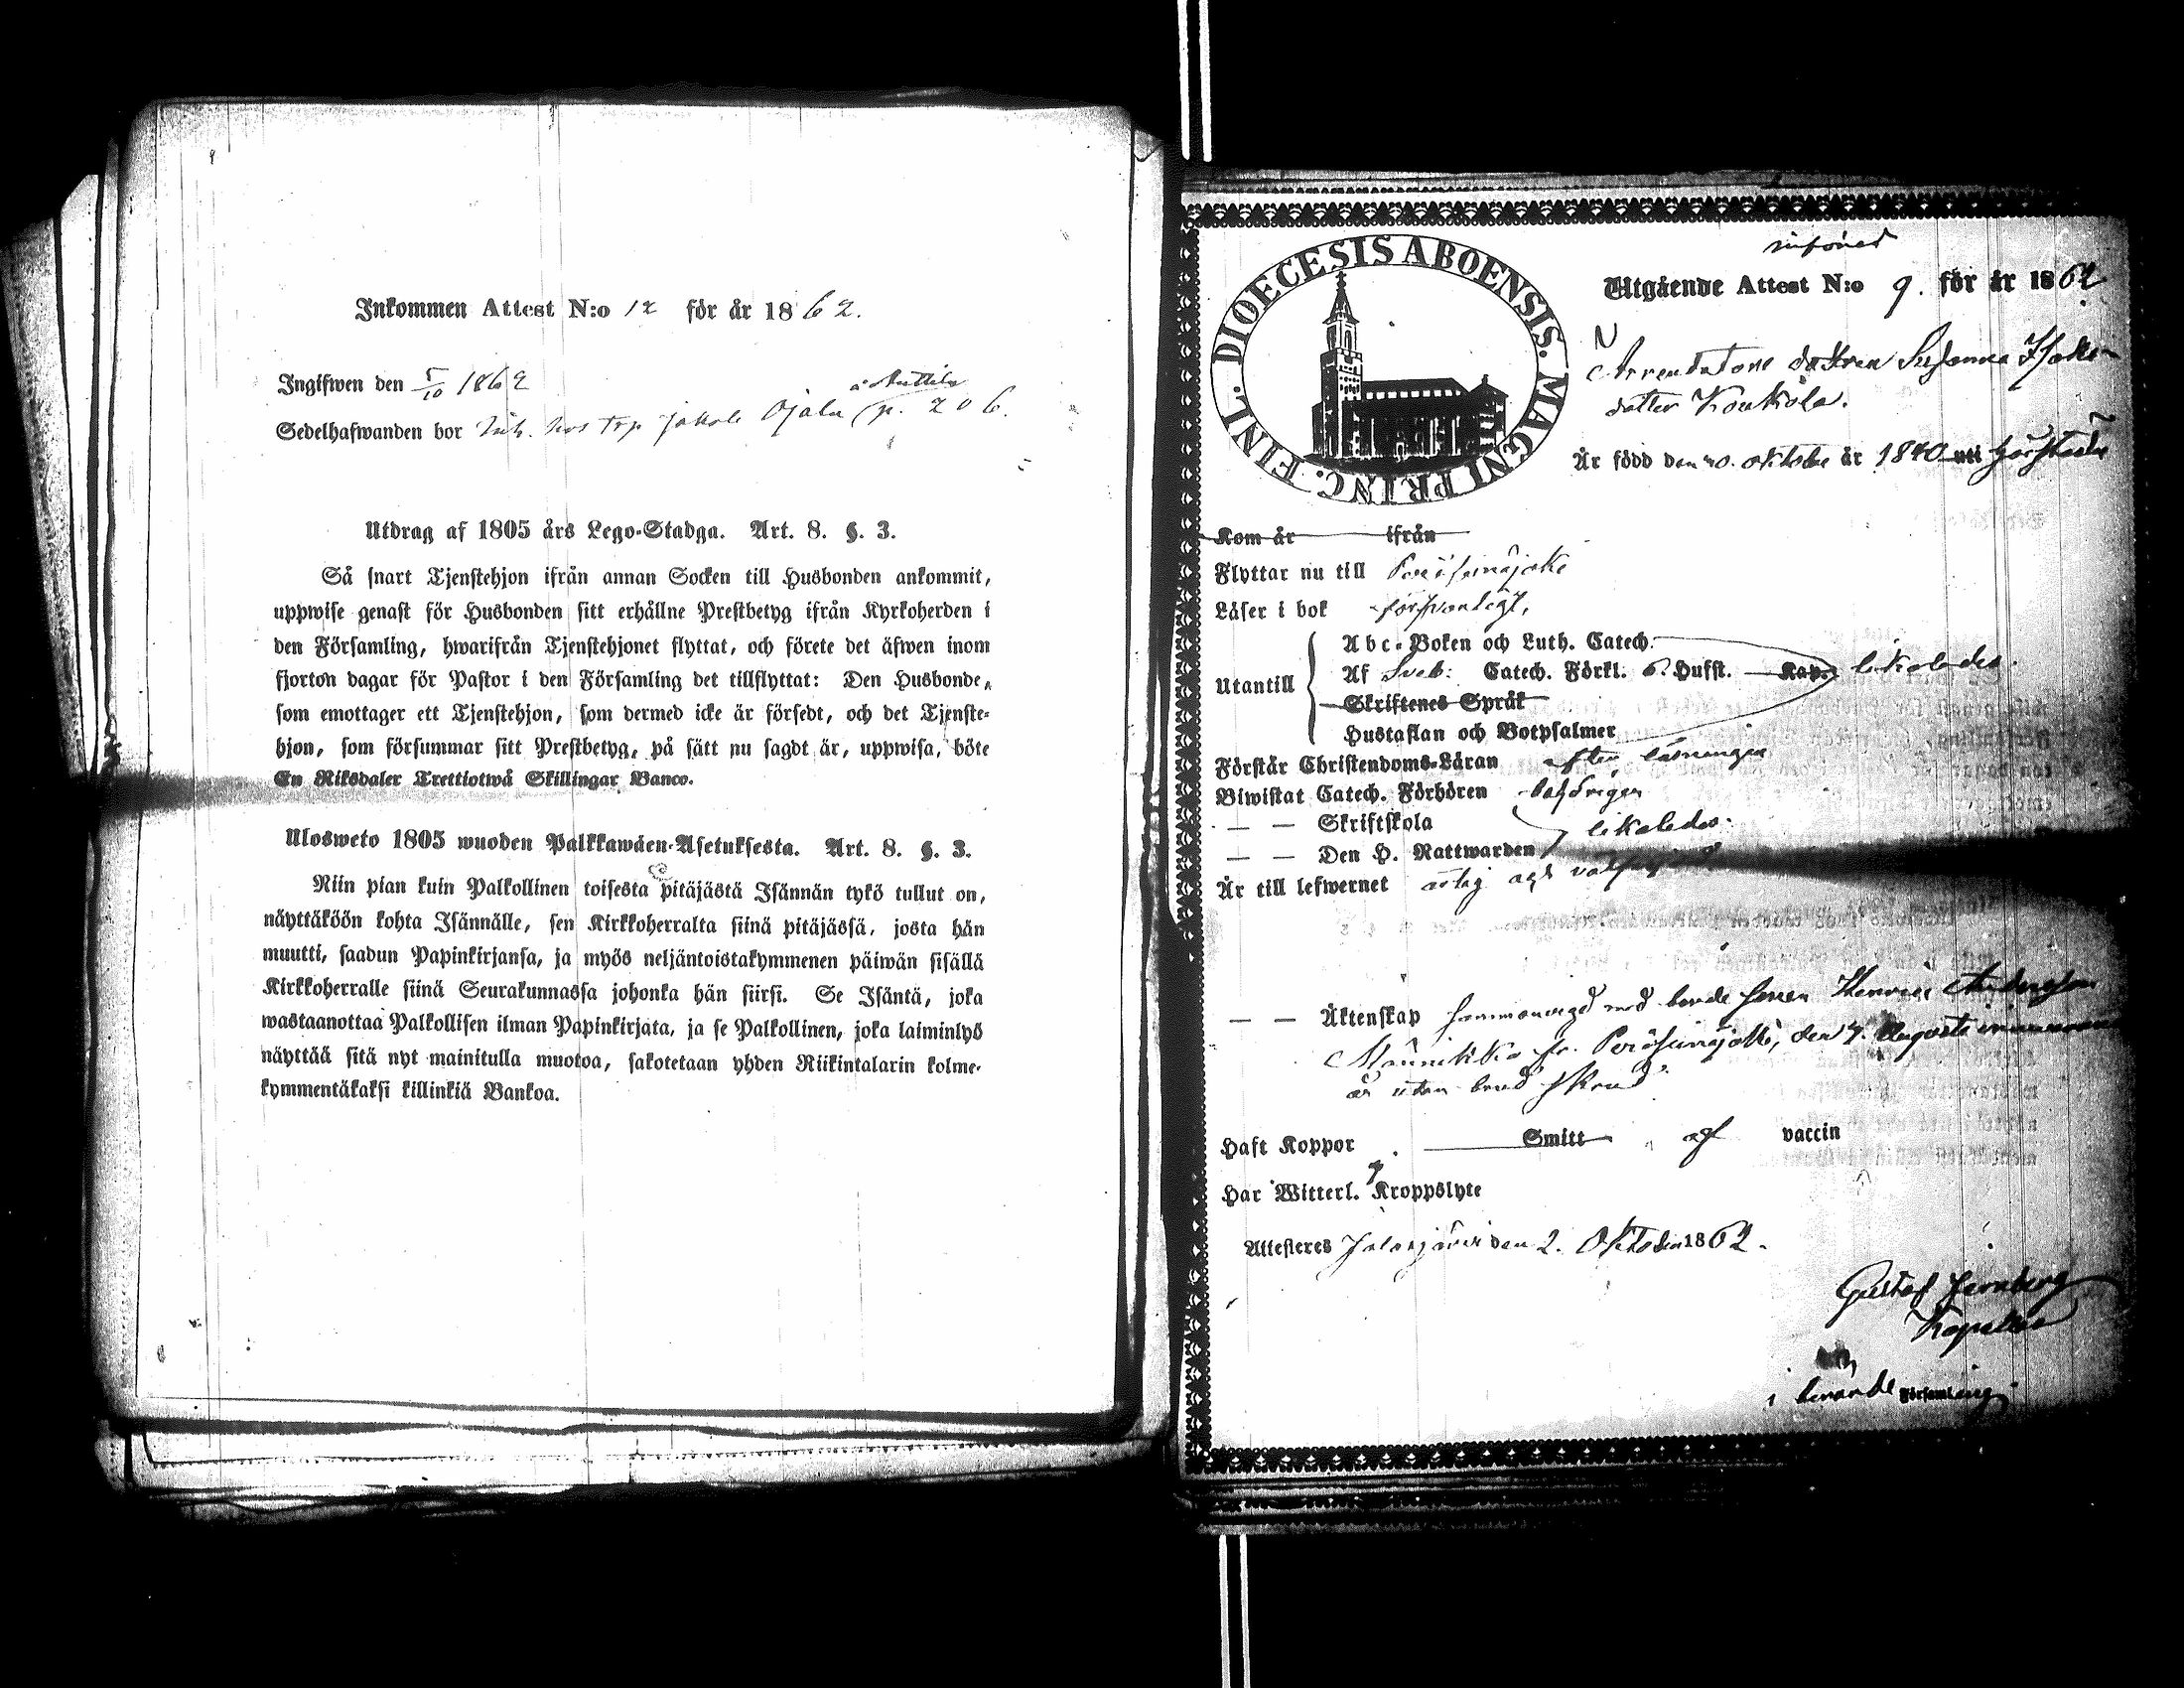 Inkommen Attest N:o 12 för år 1862.
Ingifwen den 5/10 1862
å Anttila
Sedelhafwanden bor inh. hos trp Jakob Ojala p. 206.
Utdrag af 1805 års Lego-Stadga. Art. 8. §. 3.
Så snart Tjenstehjon ifrån annan Socken till Husbonden ankommit,
uppwise genast för Husbonden sitt erhållne Prestbetyg ifrån Kyrkoherden i
den Församling, hwarifrån Tjenstehjonet flyttat, och förete det äfwen inom
fjorton dagar för Pastor i den Församling det tillflyttat: Den Husbonde,
som emottager ett Tjenstehjon, som dermed icke är försedt, och det Tjenste-
hjon, som försummar sitt Prestbetyg, på sätt nu sagdt är, uppwisa, böte
En Riksdaler Trettiotwå Skillingar Banco.
Ulosweto 1805 wuoden Palkkawäen-Asetuksesta. Art. 8. §. 3.
Niin pian kuin Palkollinen toisesta pitäjästä Isännän tykö tullut on,
näyttäköön kohta Isännälle, sen Kirkkoherralta siinä pitäjässä, josta hän
muutti, saadun Papinkirjansa, ja myös neljäntoistakymmenen päiwän sisällä
Kirkkoherralle siinä Seurakunnassa johonka hän siirsi. Se Isäntä, joka
wastaanottaa Palkollisen ilman Papinkirjata, ja se Palkollinen, joka laiminlyö
näyttää sitä nyt mainitulla muotoa, sakotetaan yhden Riikintalarin kolme-
kymmentäkaksi killinkiä Bankoa.
DIOECESIS ABOENSIS. MAGNI PRINC. FINL.
Utgående Attest N:o 9. för år 1862
Arrendatore dottren Susanna
dotter Koukola.
Är född den 20. oktober år 1840 uti
Kom år ifrån
Flyttar nu till Peräseinäjoki
Läser i bok försvarligt,
Utantill
Abc-Boken och Luth. Catech.
Af Sveb: Catech. Förkl. 6. Hufst. Kap. likaledes.
Skriftenes Språk
Hustaflan och Botpsalmer
Förstår Christendoms-Läran efter läsningen
Biwistat Catech. Förhören behörigen
— — Skriftskola likaledes.
— — Den H. Nattwarden
Är till lefwernet och
— — Äktenskap sammanvigd med bonde sonen Henric Andersson
Männikkö fr. Peräseinäjoki, den 7. Augusti innevarande
år utan brud skrud
Haft Koppor Smitt af vaccin
Har Witterl. Kroppslyte
Attesteres Jalasjärvi den 2. Oktober 1862.
Gustaf
Kapellan
i berörde Församling